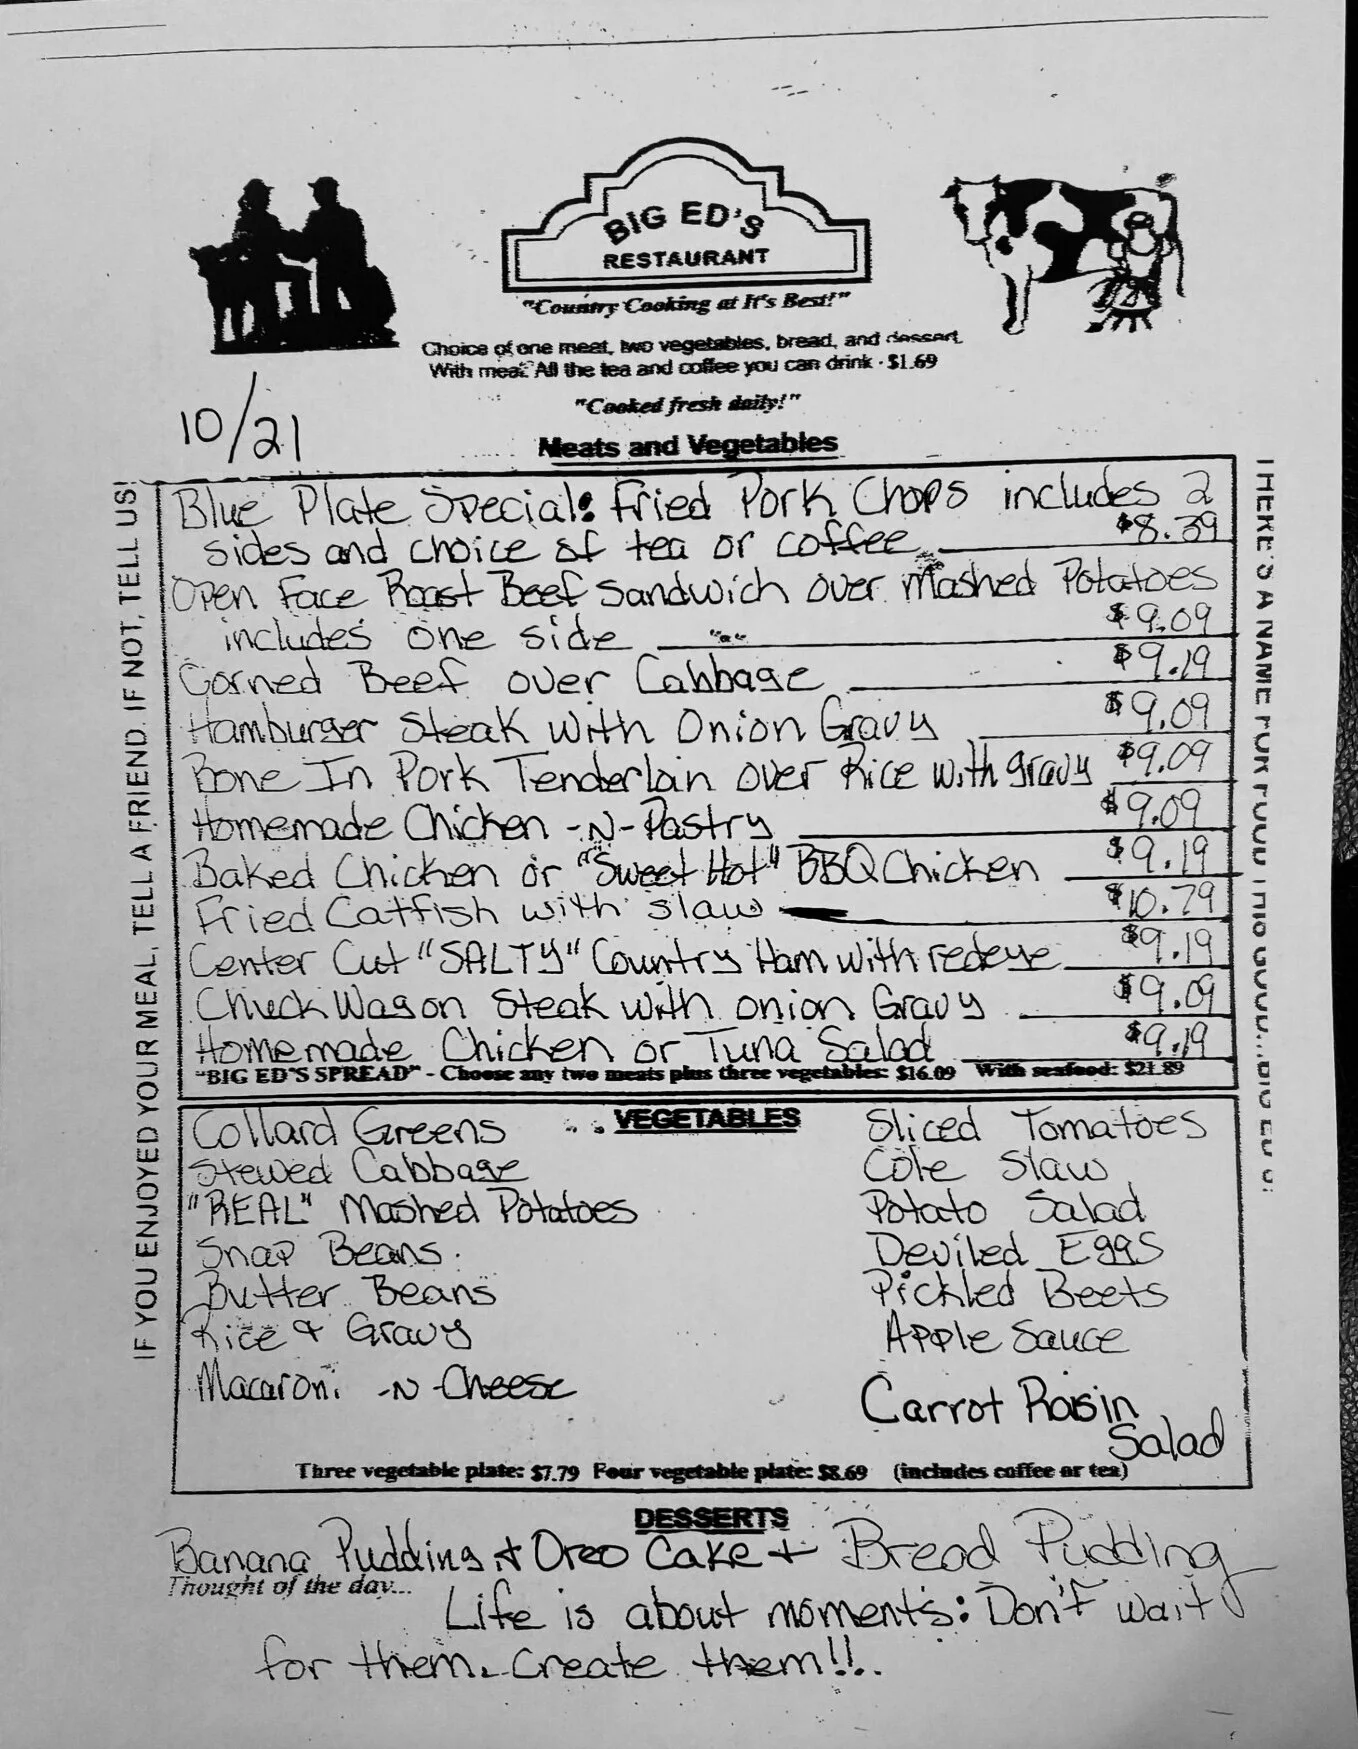 BIG ED'S
RESTAURANT
"Country Cooking at It's Best!"
Choice of one meat, two vegetables, bread, and dessert.
With meat "All the tea and coffee you can drink - $1.69
"Cooked fresh daily!"
10/21
Meats and Vegetables
Blue Plate Special: Fried Pork Chops includes 2
sides and choice of tea or coffee $8.39
Open Face Roast Beef Sandwich over Mashed Potatoes
includes one side $9.09
Corned Beef over Cabbage $9.19
Hamburger Steak with Onion Gravy $9.09
Bone In Pork Tenderloin over Rice with gravy $9.09
Homemade Chicken -N- Pastry $9.09
Baked Chicken or "Sweet Hot" BBQ Chicken $9.19
Fried Catfish with slaw $10.79
Center Cut "SALTY" Country Ham with redeye $9.19
Chuck Wagon Steak with onion Gravy $9.09
Homemade Chicken or Tuna Salad $9.19
"BIG ED'S SPREAD" - Choose any two meats plus three vegetables: $16.09 With seafood: $21.89
VEGETABLES
Collard Greens
Stewed Cabbage
"REAL" Mashed Potatoes
Snap Beans
Butter Beans
Rice & Gravy
Macaroni -N- Cheese
Sliced Tomatoes
Cole Slaw
Potato Salad
Deviled Eggs
Pickled Beets
Apple Sauce
Carrot Raisin
Salad
Three vegetable plate: $7.79 Four vegetable plate: $8.69 (includes coffee or tea)
DESSERTS
Banana Pudding + Oreo Cake + Bread Pudding
Thought of the day...
Life is about moments: Don't wait
for them. Create them!!..
IF YOU ENJOYED YOUR MEAL, TELL A FRIEND. IF NOT, TELL US!
THERE'S A NAME FOR FOOD THIS GOOD...BIG ED'S!